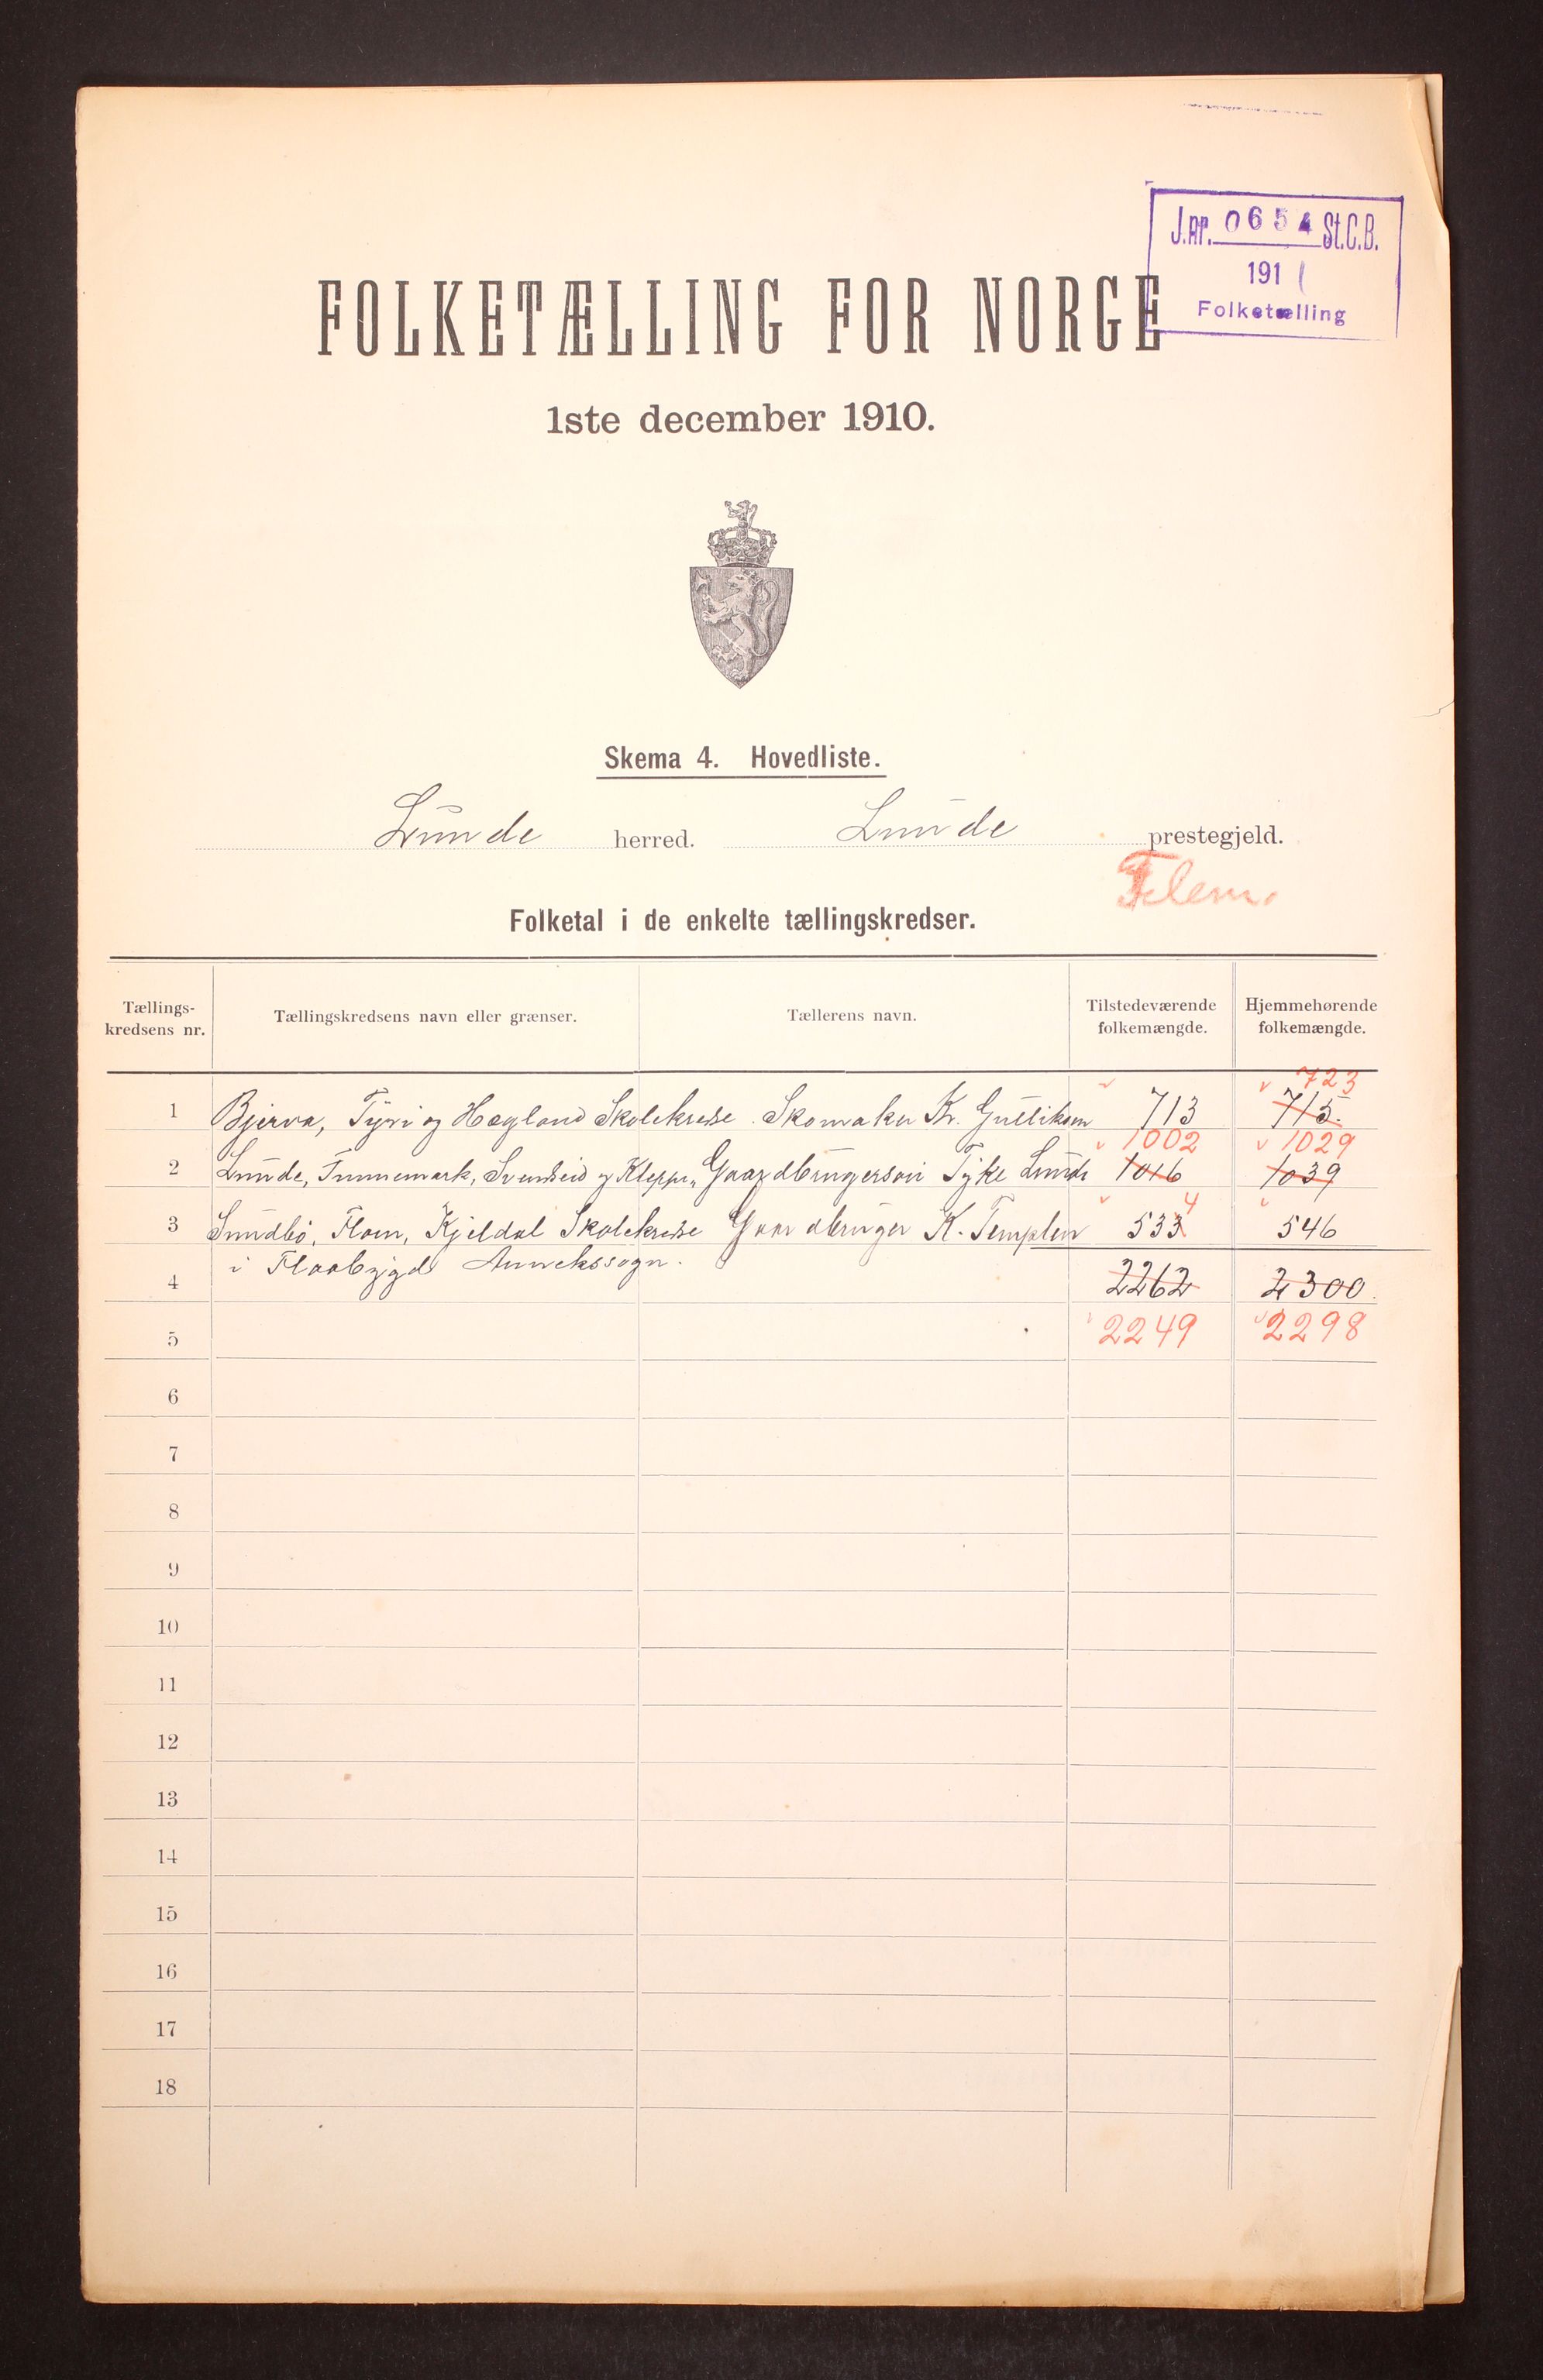 J.nr. 0654 St.C.B.
191
Folketælling
FOLKETÆLLING FOR NORGE
1ste december 1910.
Skema 4. Hovedliste.
Lunde herred. Lunde prestegjeld.
Telem.
Folketal i de enkelte tællingskredser.
Tællings-kredsens nr. Tællingskredsens navn eller grænser. Tællerens navn. Tilstedeværende folkemængde. Hjemmehørende folkemængde.
723
1 Bjerva, Tyri og Hogland Skolekredse. Skomaker Kr. Gulliksen 713 715.
1002 1029
2 Lunde, Svenseid og Kleppe „ Gaardbrugersøn Lunde 1016 1039
4
3 Sundbö, Flom, Kjeldal Skolekredse Gaardbruger K. Templen 533 546
i Flaabygd Annekssogn.
4 2262 2300.
5 2249 2298
6
7
8
9
10
11
12
13
14
15
16
17
18